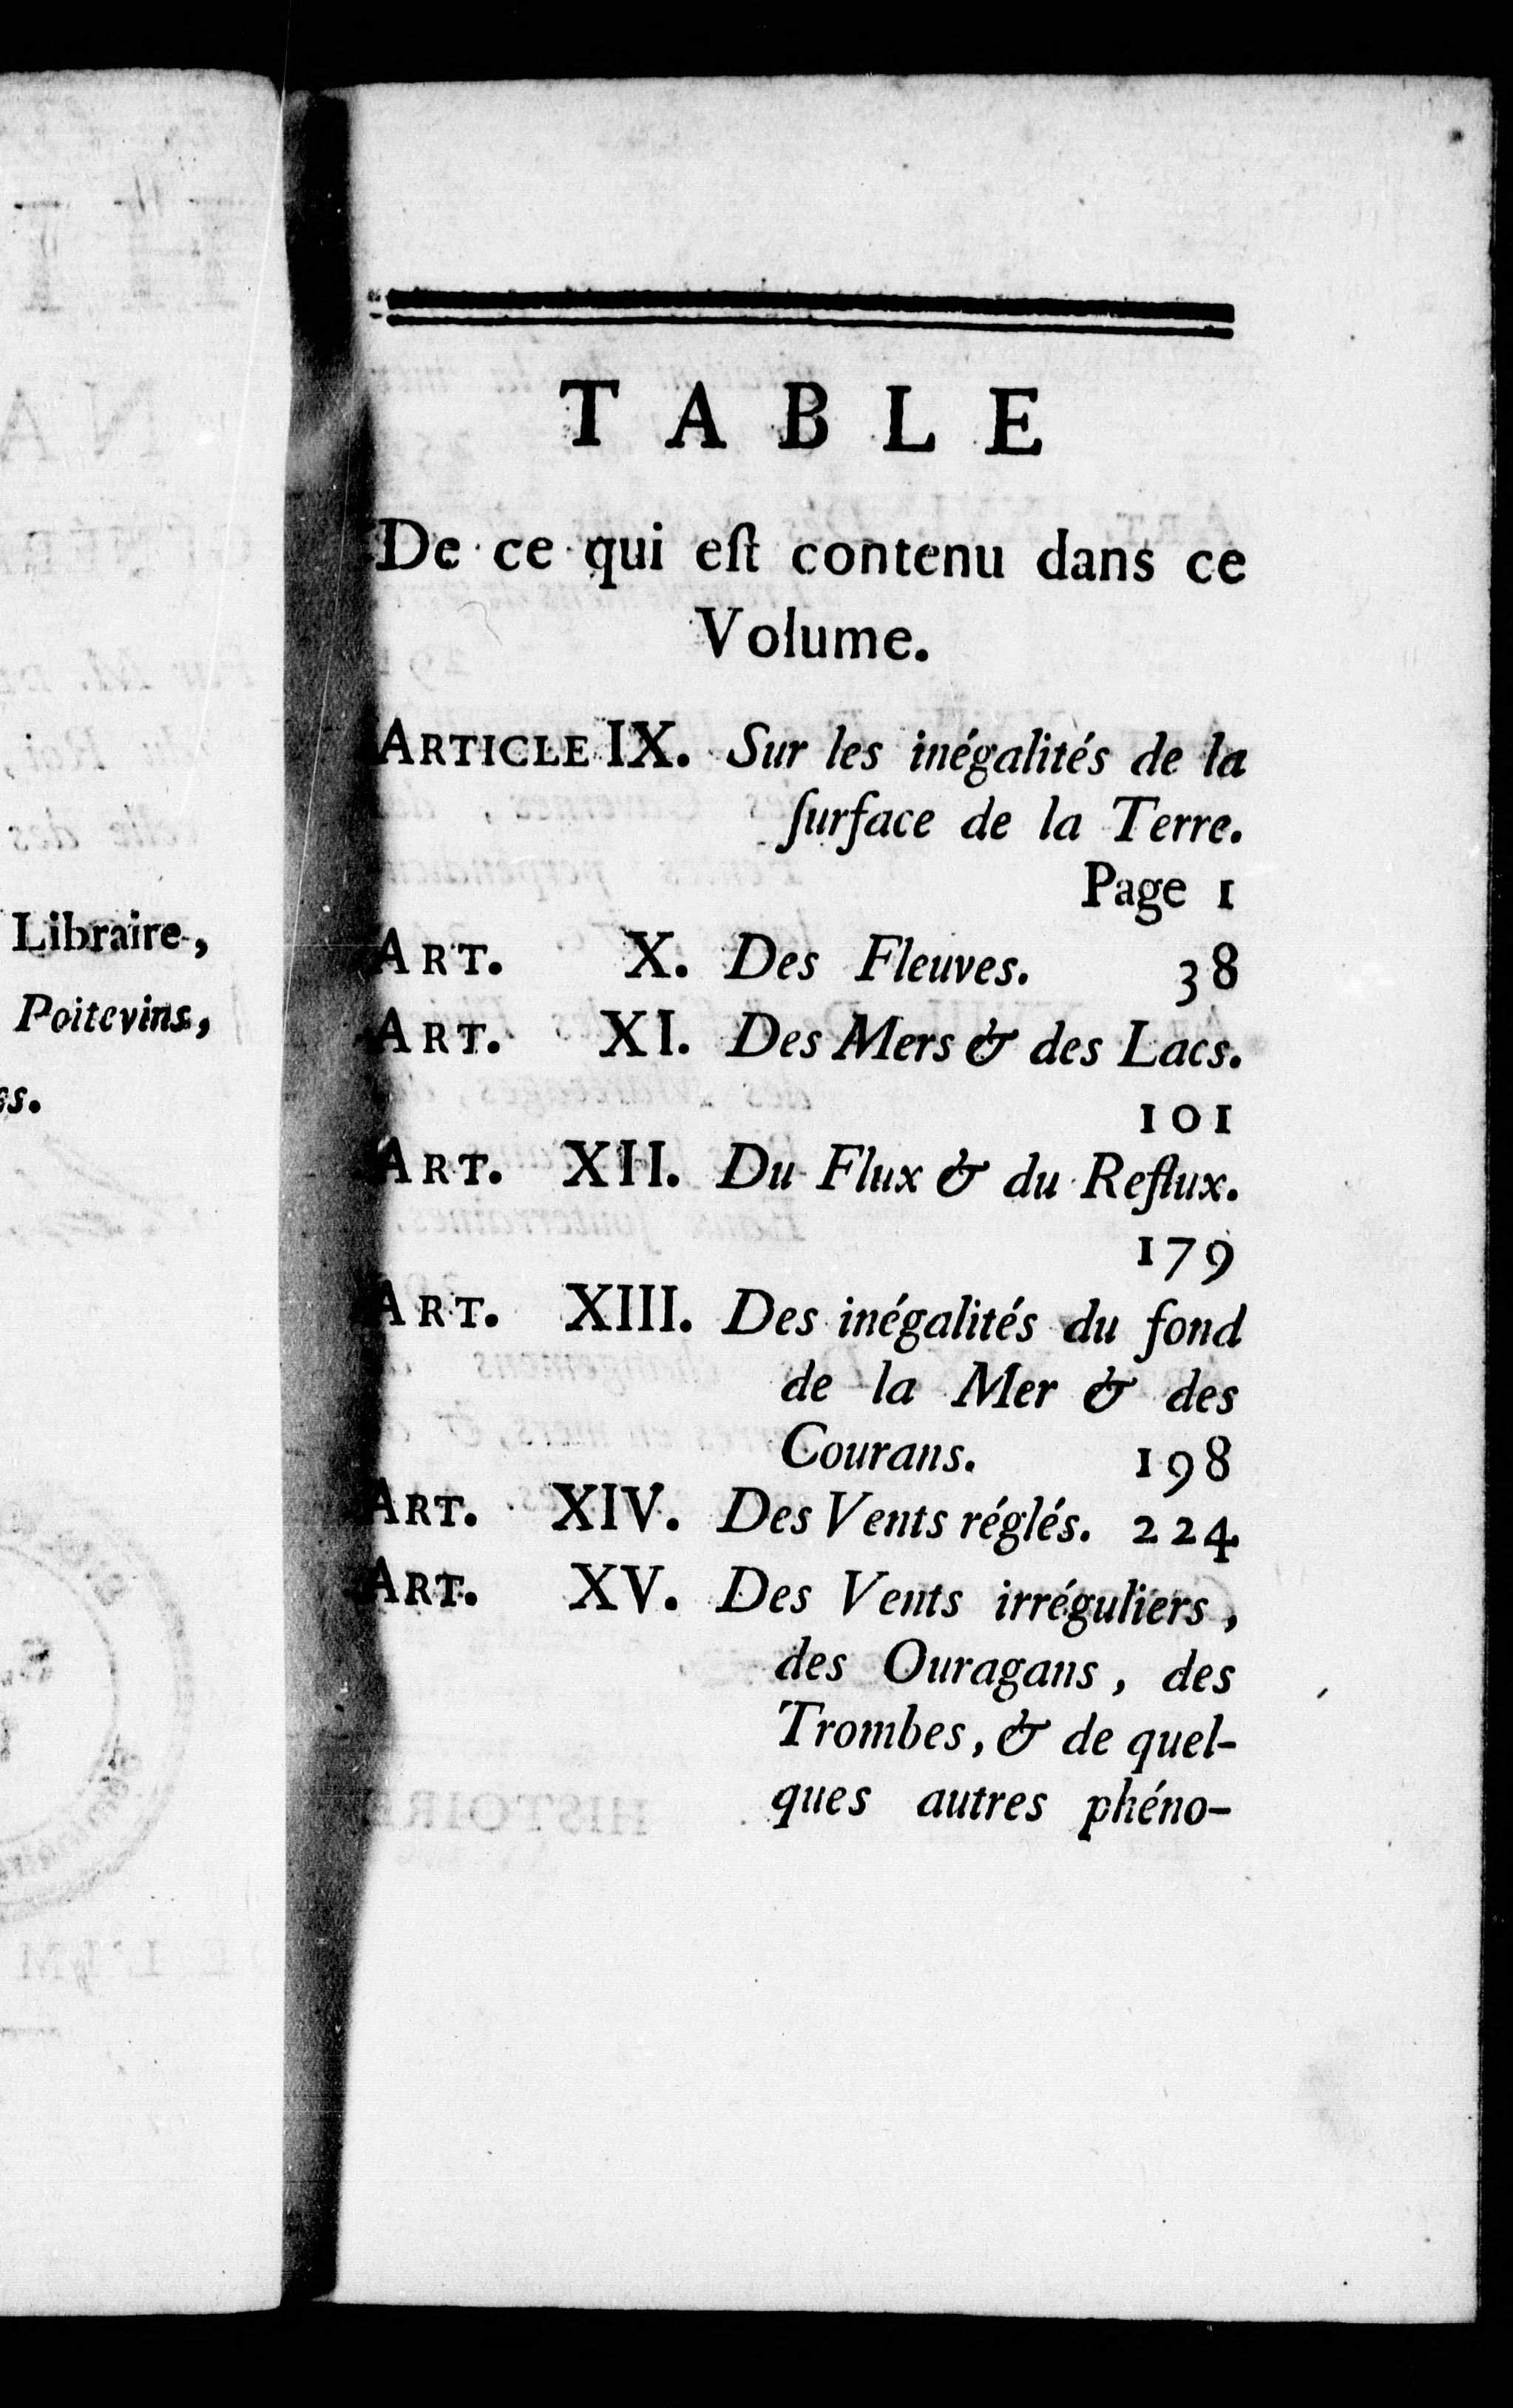 Libraire,
Poitevins,
TABLE
De ce qui eſt contenu dans ce
Volume.
ARTICLE IX. Sur les inégalités de la
ſurface de la Terre.
Page 1
ART. X. Des Fleuves. 38
ART. XI. Des Mers & des Lacs.
101
ART. XII. Du Flux & du Reflux.
179
ART. XIII. Des inégalités du fond
de la Mer & des
Courans. 198
ART. XIV. Des Vents réglés. 224
ART. XV. Des Vents irréguliers,
des Ouragans, des
Trombes, & de quel-
ques autres phéno-